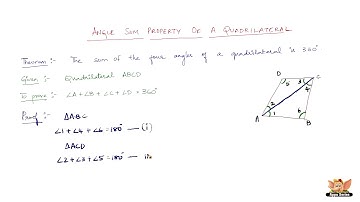 ANGLE SUM PROPERTY OF A QUADRILATERAL
Theorem :- The sum of the four angles of a quadrilateral is 360°
Given :- Quadrilateral ABCD
To prove :- ∠A+∠B+∠C+∠D = 360°
Proof :- ΔABC
∠1+∠4+∠6 = 180° — (i)
ΔACD
∠2+∠3+∠5 = 180° — (ii
D 5 3 C
4
2
1 6
A B